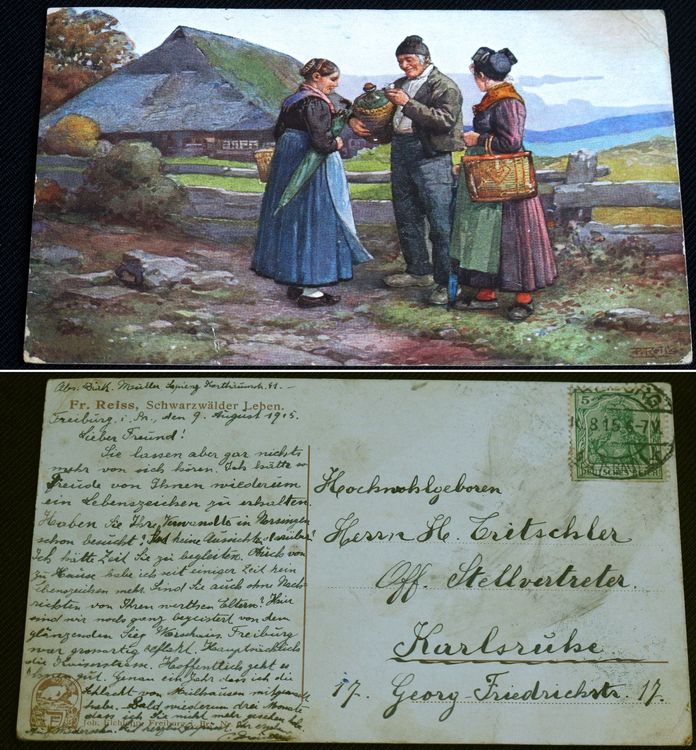 F. Reiss
Abs. Dick. Müller
Fr. Reiss, Schwarzwälder Leben.
Freiburg i. Br., den 9. August 1915
Lieber Freund!
Sie lassen aber gar nichts
mehr von sich hören. Ich hätte so
Freude von Ihnen wiederum
ein Lebenszeichen zu erhalten.
Haben Sie Ihre Verwandte in
schon besucht? Und keine Aussichten darüber?
Ich hätte Zeit Sie zu begleiten. Auch von
zu Hause habe ich seit einiger Zeit kein
Lebenszeichen mehr. Sind Sie auch ohne Nach-
richten von Ihren werthen Eltern? Hier
sind wir noch ganz begeistert von dem
glänzenden Sieg Warschaus. Freiburg
war grossartig beflakt. Hauptsächlich
die Kaiserstrasse. Hoffentlich geht es
Ihnen gut. Genau ein Jahr dass ich die
Schlacht von Mülhausen mitgemacht
habe. Bald wiederum drei Monate
dass ich Sie nicht mehr gesehen habe.
Joh. Elchlepp, Freiburg i. Br. Nr.
5
8.15.6-7V.
DEUTSCHES REICH
Hochwohlgeboren
Herrn H. Tritschler
Off. Stellvertreter.
Karlsruhe
17. Georg Friedrichstr. 17.